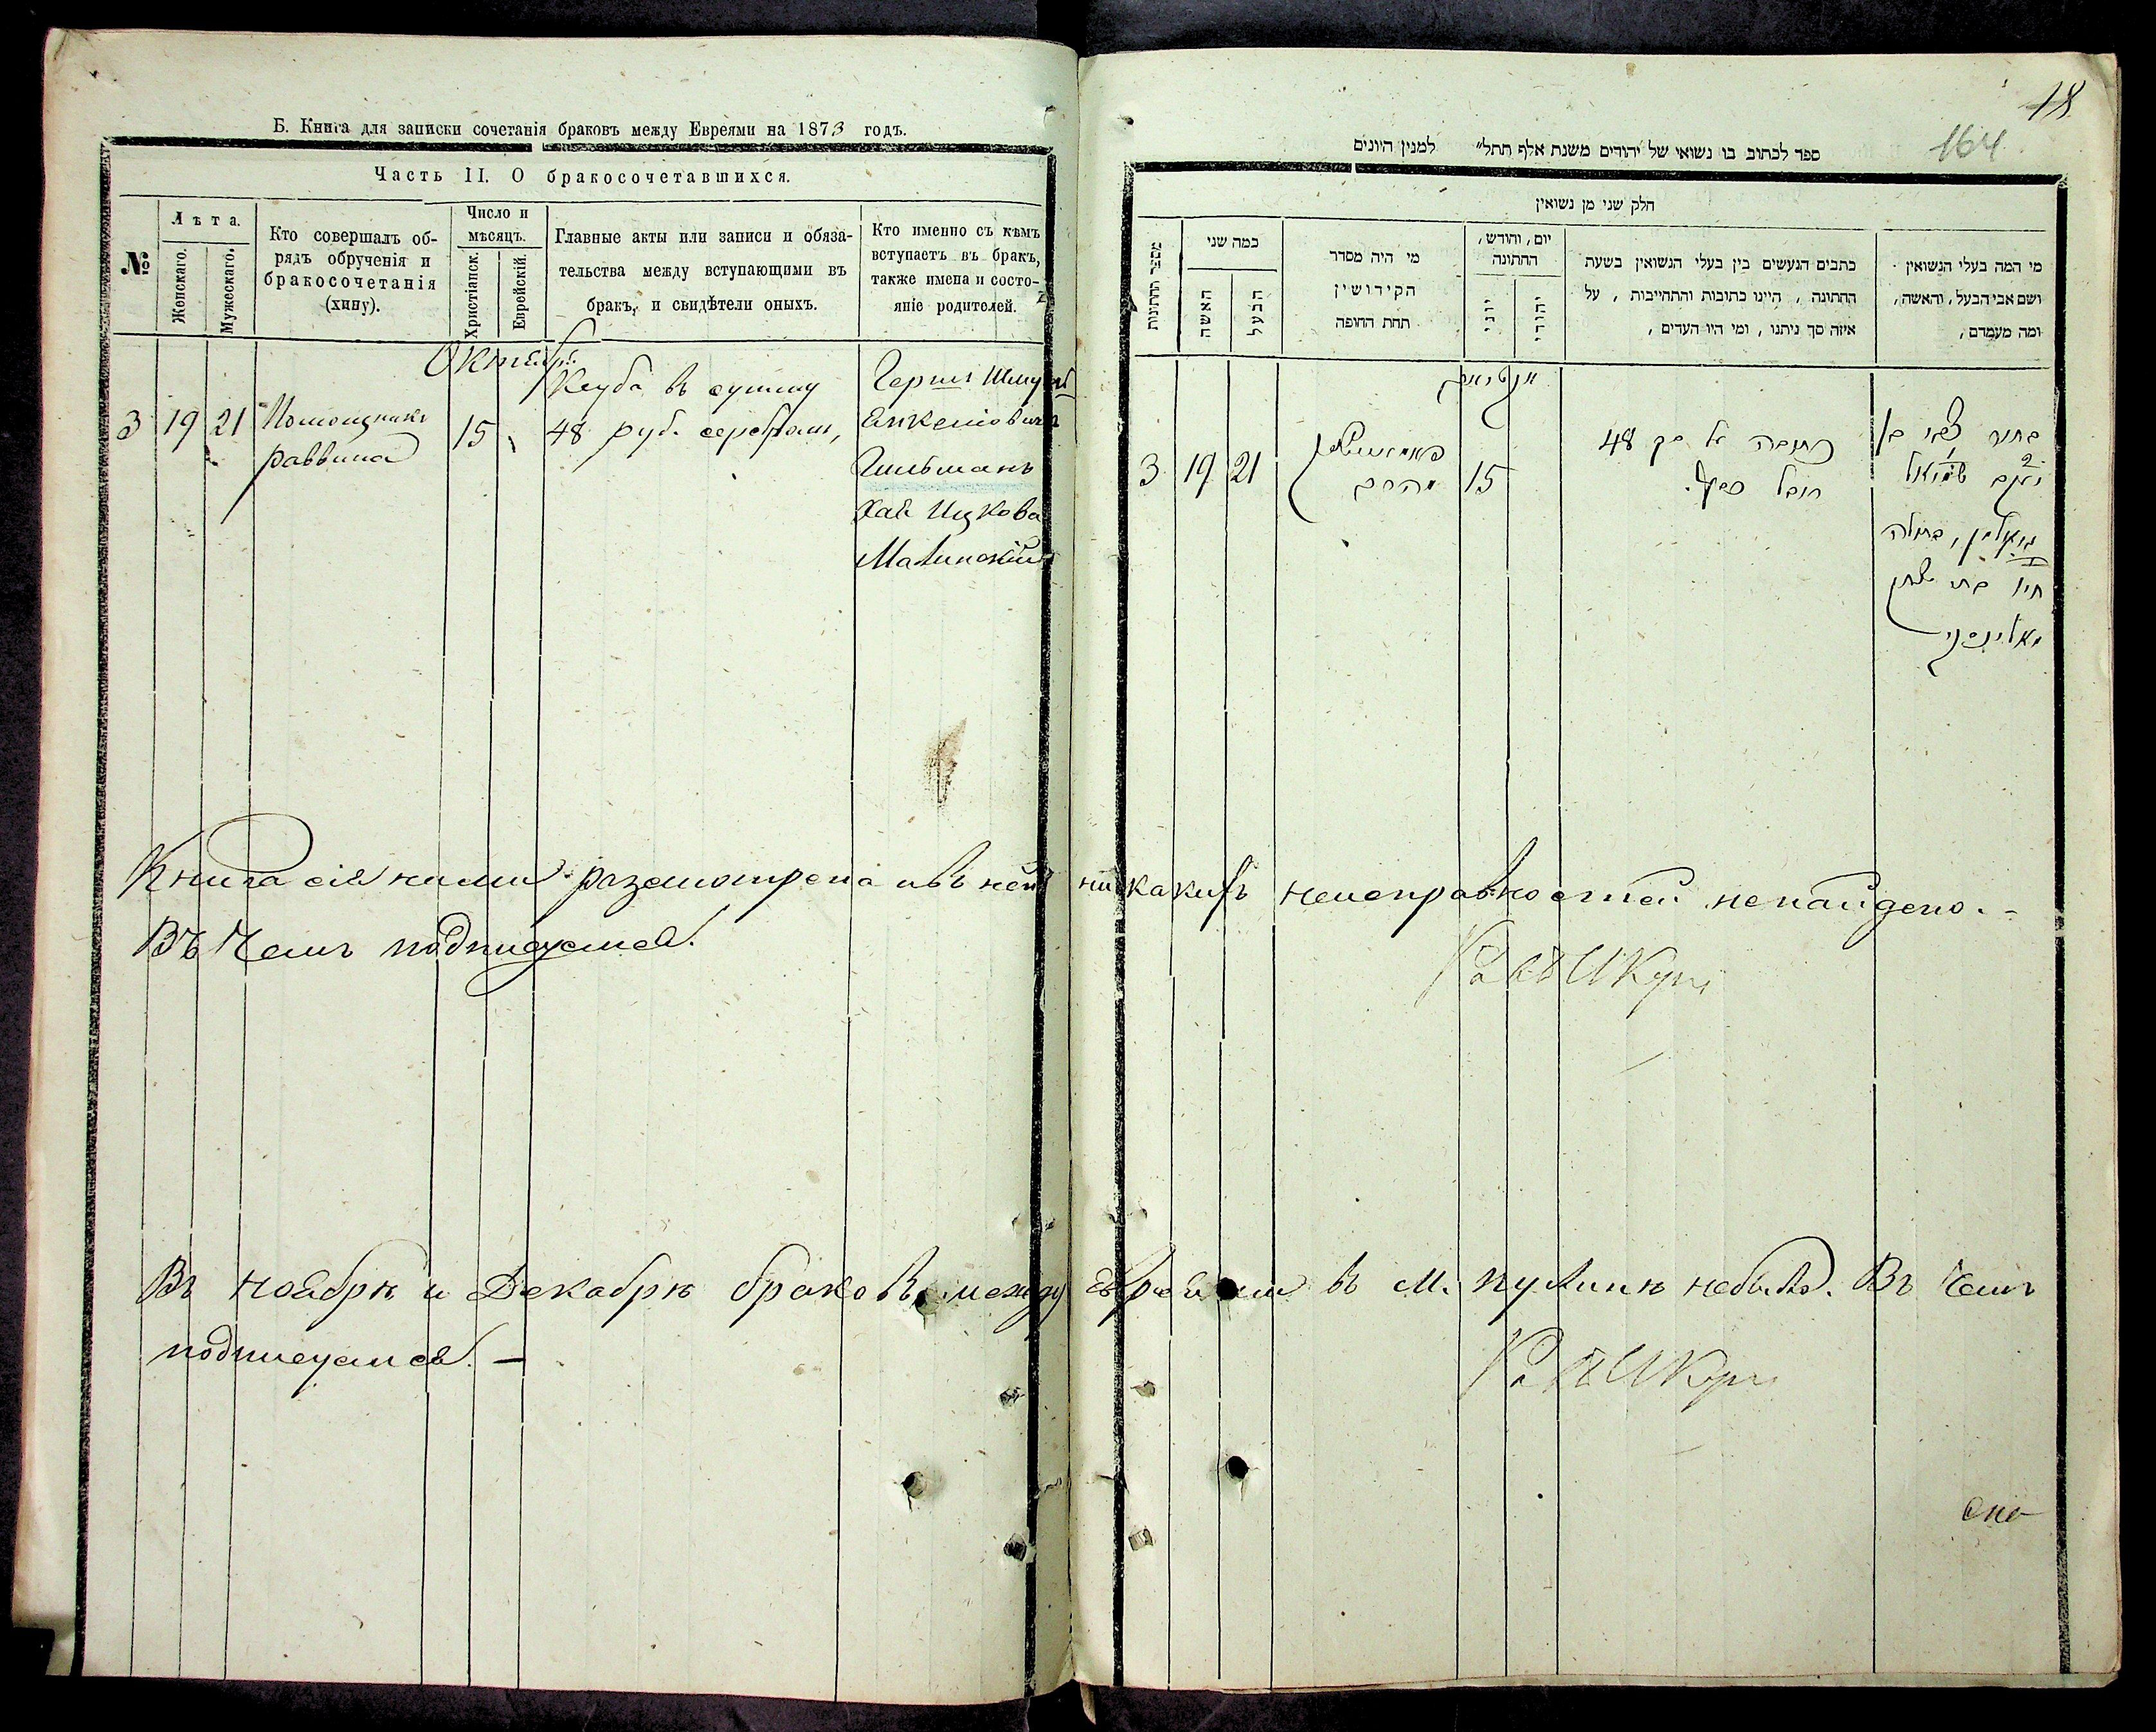 Б. Книга для записки сочетанія браковъ между Евреями на 1873 годъ.
Часть II. О бракосочетавшихся.
№
Лѣта.
Женскаго.
Мужескаго.
Кто совершалъ об-
рядъ обрученія и
бракосочетанія
(хину).
Число и
мѣсяцъ.
Христіанск.
Еврейскій.
Главные акты или записи и обяза-
тельства между вступающими въ
бракъ, и свидѣтели оныхъ.
Кто именно съ кѣмъ
вступаетъ въ бракъ,
также имена и состо-
яніе родителей.
Октябрь
3 19 21
Помощникъ
раввина
15
Ксуба въ сумму
48 руб. серебромъ,
Гершъ Шмуль
Янкеліовичъ
Гительманъ
Хая Ицкова
Малинскій
Книга сія нами разсмотрена и въ ней никакихъ неисправностей ненайдено.
Въ чемъ подписуемся.
Въ ноябрѣ и Декабрѣ браковъ между Евреями въ м. Пулинѣ небыло. Въ чемъ
подписуемся. —
18
164
ספר לכתוב בו נשואי של יהודים משנת אלף תתל״ למנין היונים
חלק שני מן נשואין
מספר החתונות
כמה שני
האשה
הבעל
מי היה מסדר
הקידושין
תחת החופה
יום, וחודש,
החתונה
יוני
יהודי
כתבים הנעשים בין בעלי הנשואין בשעת
החתונה, היינו כתובות והתחייבות, על
איזה סך ניתנו, ומי היו העדים,
מי המה בעלי הנשואין
ושם אבי הבעל, והאשה,
ומה מעמדם,
3 19 21
15
כתובה על סך 48
רובל כסף.
בחור צבי בן
יעקב שמואל
בתולה
חיי' בת יצחק
מאלינסקי